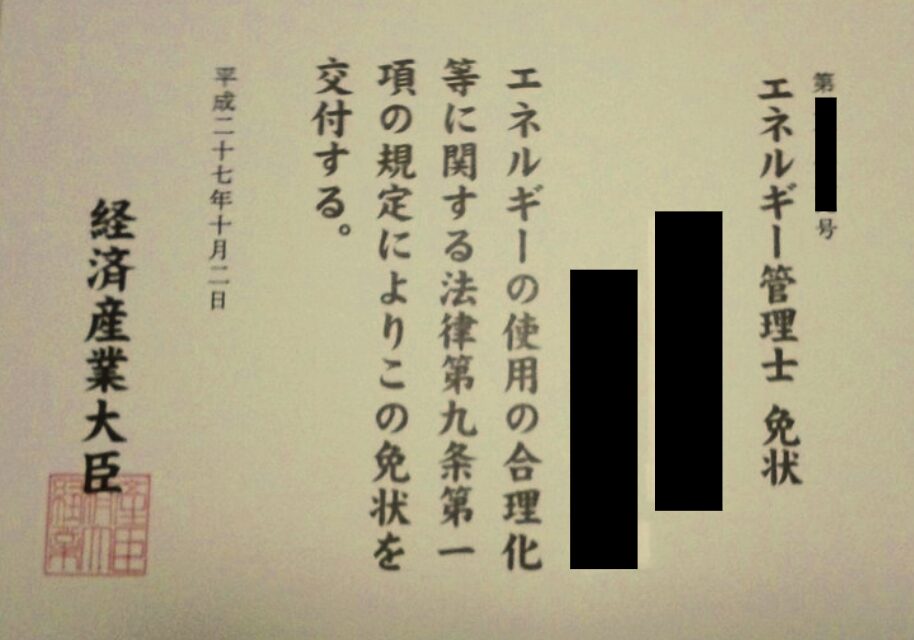 第 号
エネルギー管理士 免状
エネルギーの使用の合理化
等に関する法律第九条第一
項の規定によりこの免状を
交付する。
平成二十七年十月二日
経済産業大臣